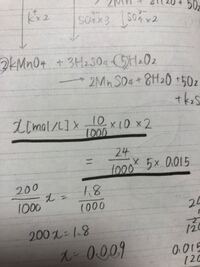 K⁺×2 SO₄²⁻×3 SO₄²⁻×2
②KMnO₄ + 3H₂SO₄ + ⑤H₂O₂
→ 2MnSO₄ + 8H₂O + 5O₂
x[mol/L] × 10/1000 × 10 × 2
= 24/1000 × 5 × 0.015
200/1000 x = 1.8/1000
200x = 1.8
x = 0.009